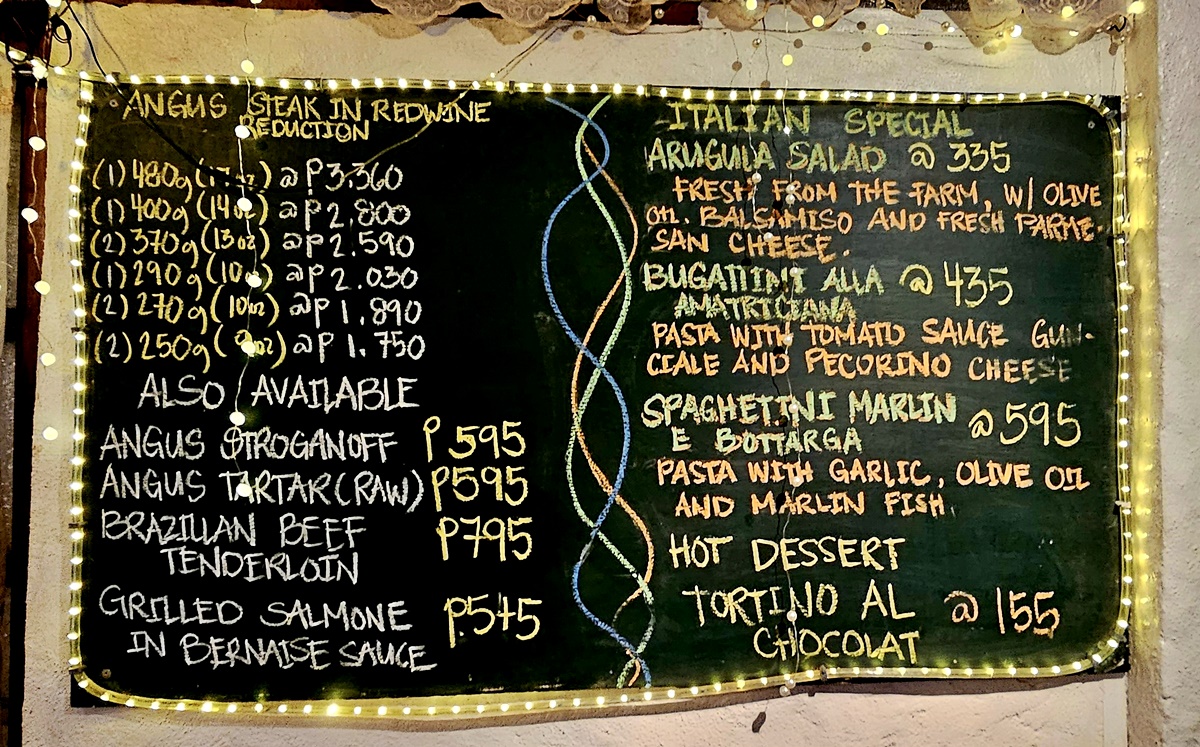 ANGUS STEAK IN REDWINE
REDUCTION
(1) 480g (17oz) @ P3.360
(1) 400g (14oz) @ P2.800
(2) 370g (13oz) @ P2.590
(1) 290g (10oz) @ P2.030
(2) 270g (10oz) @ P1.890
(2) 250g (9oz) @ P1.750
ALSO AVAILABLE
ANGUS STROGANOFF P595
ANGUS TARTAR (RAW) P595
BRAZILIAN BEEF
TENDERLOIN P795
GRILLED SALMONE
IN BERNAISE SAUCE P545
ITALIAN SPECIAL
ARUGULA SALAD @ 335
FRESH FROM THE FARM, W/ OLIVE
OIL. BALSAMISO AND FRESH PARME-
SAN CHEESE.
BUGATTINI ALLA @ 435
AMATRICIANA
PASTA WITH TOMATO SAUCE GUN-
CIALE AND PECORINO CHEESE
SPAGHETTINI MARLIN @ 595
E BOTTARGA
PASTA WITH GARLIC, OLIVE OIL
AND MARLIN FISH.
HOT DESSERT
TORTINO AL @ 155
CHOCOLAT